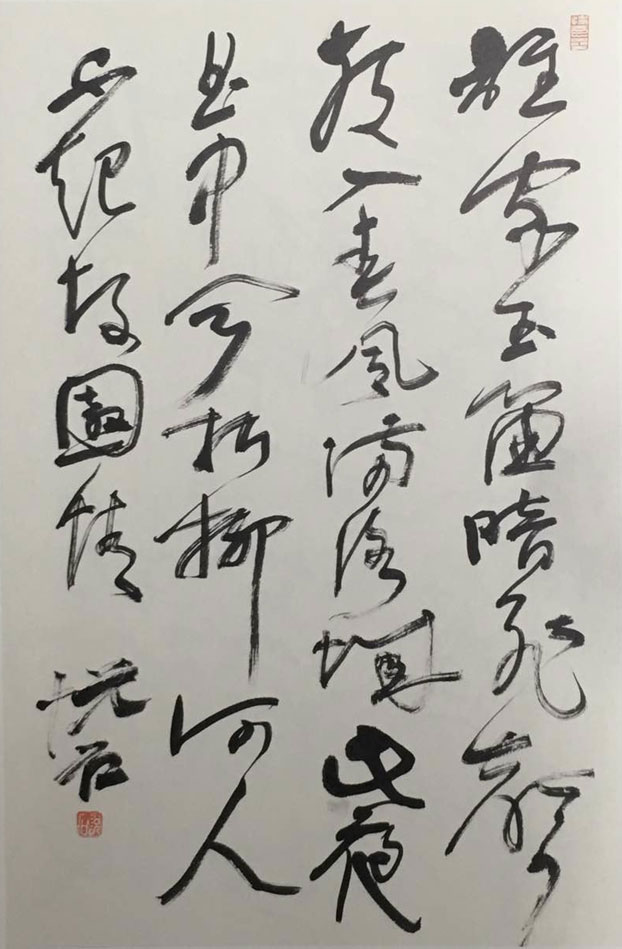 誰家玉笛暗飛聲
散入春風滿洛城此夜
曲中聞折柳何人
不起故園情